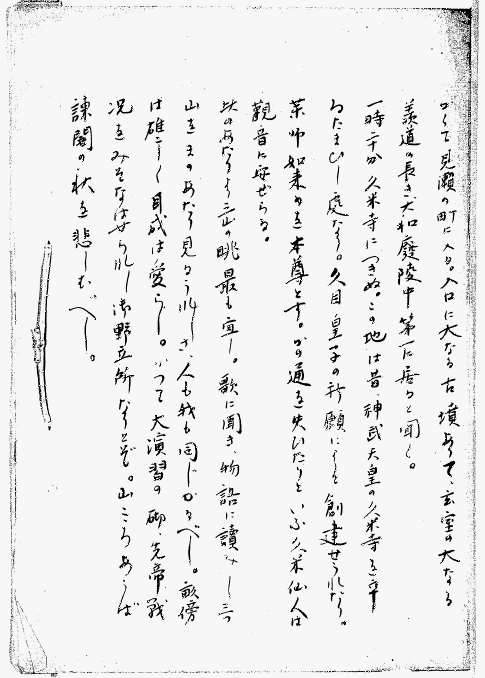 かくて見瀬の町に入る。入口に大なる古墳あり、玄室の大なる
羨道の長き大和廢陵中第一に居ると聞く。
一時二十分久米寺につきぬ。この地は昔、神武天皇の久米寺を率
ゐたまひし處なり。久目皇子の祈願により創建せられたり。
薬師如来を本尊とす。かの通を失ひたりといふ久米仙人は
觀音に安ぜらる。
此のあたりより三山の眺最も宜し。歌に聞き、物語に讀みし三つ
山をまのあたり見るうれしさ、人も我も同じかるべし。畝傍
は雄々しく耳成は愛らし。かつて大演習の砌、先帝戰
况をみそなはせられし御野立所なりとぞ。山こゝろあらば
諒闇の秋を悲しむべし。